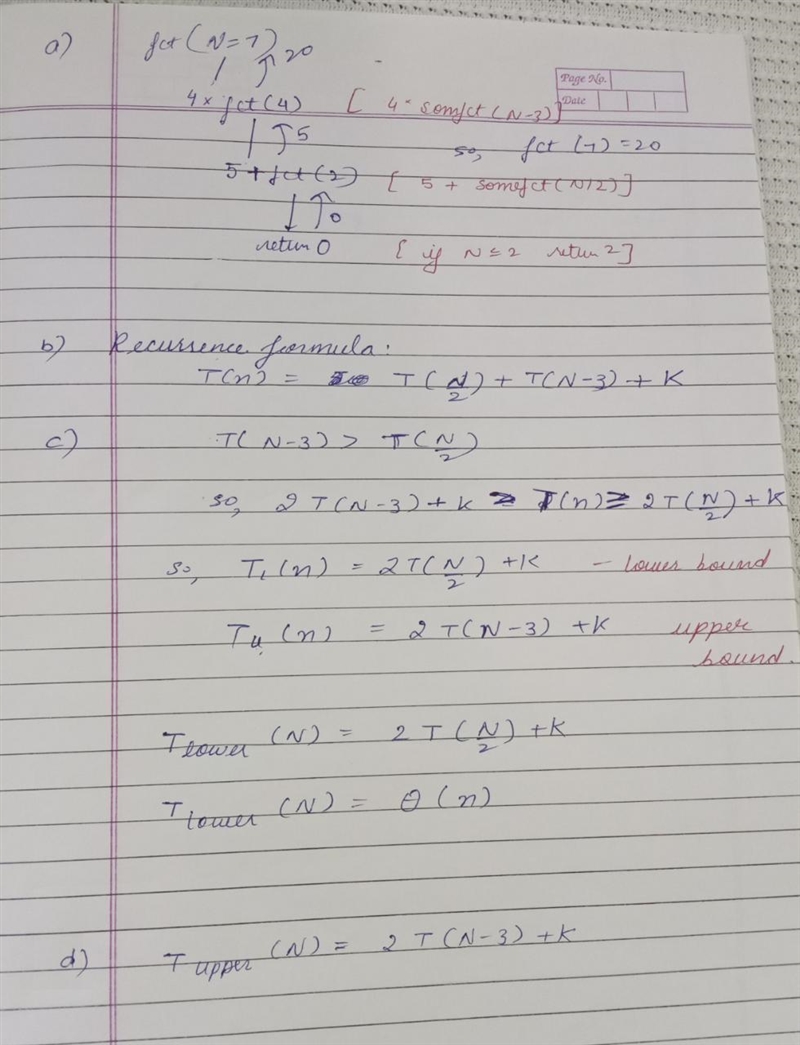 a) fct (N=7)
20
Page No.
Date
4 × fct (4) [ 4 * somfct (N-3)]
5
so, fct (7) = 20
5 + fct (2) [ 5 + somefct (N/2)]
0
return 0 [ if N ≤ 2 return 2]
b) Recurrence formula:
T(n) = T(N/2) + T(N-3) + K
c) T(N-3) > T(N/2)
so, 2T(N-3) + K ≥ T(n) ≥ 2T(N/2) + K
so, T₁(n) = 2T(N/2) + K — lower bound
Tu (n) = 2T(N-3) + K upper
bound.
T lower (N) = 2T(N/2) + K
T lower (N) = θ(n)
d) T upper (N) = 2T(N-3) + K